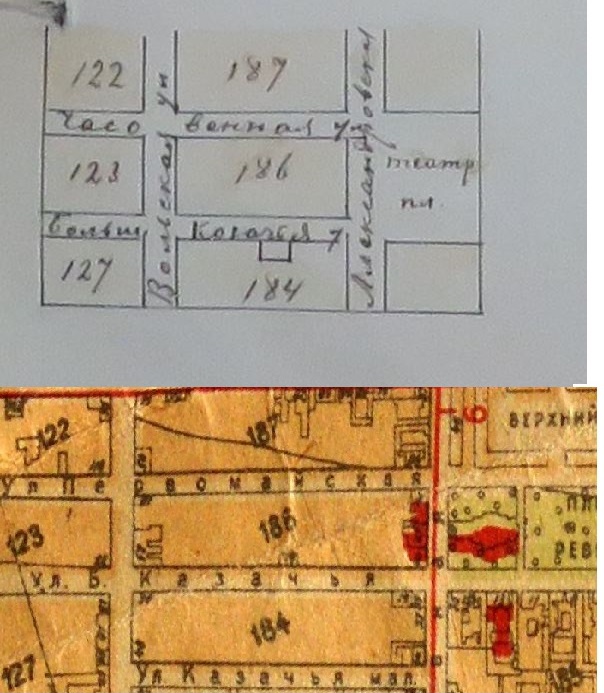 122
187
Часовенная ул
123
186
театр.
пл.
Больш Казачья у
127
184
Вольская ул
Александровская
122
187
6
ВЕРХНИЙ
Ул Первомайская
123
186
ПЛ
РЕВ
Ул. Б. Казачья
184
127
Ул Казачья мал.